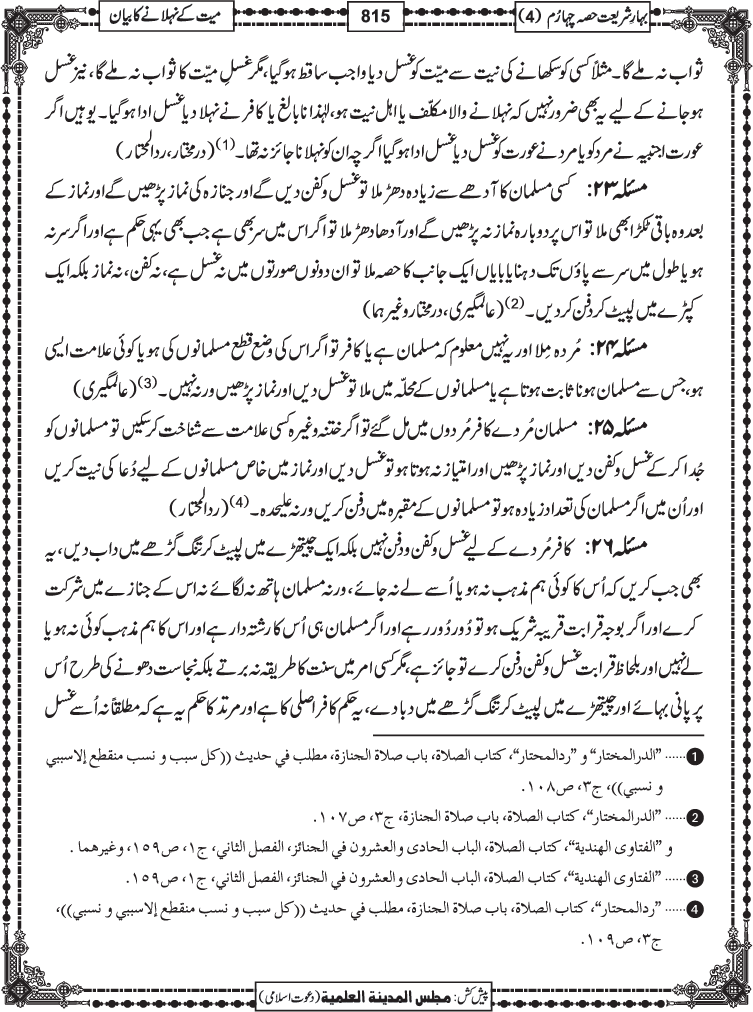 بہارِشریعت حصہ چہارم (4)
815
میت کے نہلانے کا بیان
ثواب نہ ملے گا۔ مثلاً کسی کو سکھانے کی نیت سے میّت کو غسل دیا واجب ساقط ہوگیا، مگر غسلِ میّت کا ثواب نہ ملے گا، نیز غسل
ہو جانے کے لیے یہ بھی ضرور نہیں کہ نہلانے والا مکلّف یا اہل نیت ہو، لہٰذا نابالغ یا کافر نے نہلا دیا غسل ادا ہوگیا۔ یوہیں اگر
عورت اجنبیہ نے مرد کو یا مرد نے عورت کو غسل دیا غسل ادا ہوگیا اگرچہ ان کو نہلانا جائز نہ تھا۔ (1) (درمختار، ردالمحتار)
مسئلہ ۲۳: کسی مسلمان کا آدھے سے زیادہ دھڑ ملا تو غسل و کفن دیں گے اور جنازہ کی نماز پڑھیں گے اور نماز کے
بعد وہ باقی ٹکڑا بھی ملا تو اس پر دوبارہ نماز نہ پڑھیں گے اور آدھا دھڑ ملا تو اگر اس میں سر بھی ہے جب بھی یہی حکم ہے اور اگر سر نہ
ہو یا طول میں سر سے پاؤں تک دہنا یا بایاں ایک جانب کا حصہ ملا تو ان دونوں صورتوں میں نہ غسل ہے، نہ کفن، نہ نماز بلکہ ایک
کپڑے میں لپیٹ کر دفن کر دیں۔ (2) (عالمگیری، درمختار وغیرہما)
مسئلہ ۲۴: مُردہ مِلا اور یہ نہیں معلوم کہ مسلمان ہے یا کافر تو اگر اس کی وضع قطع مسلمانوں کی ہو یا کوئی علامت ایسی
ہو، جس سے مسلمان ہونا ثابت ہوتا ہے یا مسلمانوں کے محلہ میں ملا تو غسل دیں اور نماز پڑھیں ورنہ نہیں۔ (3) (عالمگیری)
مسئلہ ۲۵: مسلمان مُردے کافر مُردوں میں مل گئے تو اگر ختنہ وغیرہ کسی علامت سے شناخت کر سکیں تو مسلمانوں کو
جُدا کرکے غسل و کفن دیں اور نماز پڑھیں اور امتیاز نہ ہوتا ہو تو غسل دیں اور نماز میں خاص مسلمانوں کے لیے دُعا کی نیت کریں
اور اُن میں اگر مسلمان کی تعداد زیادہ ہو تو مسلمانوں کے مقبرہ میں دفن کریں ورنہ علیحدہ۔ (4) (ردالمحتار)
مسئلہ ۲۶: کافر مُردے کے لیے غسل و کفن و دفن نہیں بلکہ ایک چیتھڑے میں لپیٹ کر تنگ گڑھے میں داب دیں، یہ
بھی جب کریں کہ اُس کا کوئی ہم مذہب نہ ہو یا اُسے لے نہ جائے، ورنہ مسلمان ہاتھ نہ لگائے نہ اس کے جنازے میں شرکت
کرے اور اگر بوجہ قرابت قریبہ شریک ہو تو دُور دُور رہے اور اگر مسلمان ہی اُس کا رشتہ دار ہے اور اس کا ہم مذہب کوئی نہ ہو یا
لے نہیں اور بلحاظ قرابت غسل و کفن دفن کرے تو جائز ہے، مگر کسی امر میں سنت کا طریقہ نہ برتے بلکہ نجاست دھونے کی طرح اُس
پر پانی بہائے اور چیتھڑے میں لپیٹ کر تنگ گڑھے میں دبا دے، یہ حکم کافر اصلی کا ہے اور مرتد کا حکم یہ ہے کہ مطلقًا نہ اُسے غسل
1 ...... "الدرالمختار" و "ردالمحتار"، كتاب الصلاة، باب صلاة الجنازة، مطلب في حديث ((كل سبب و نسب منقطع إلاسببي
و نسبي))، ج٣، ص١٠٨.
2 ...... "الدرالمختار"، كتاب الصلاة، باب صلاة الجنازة، ج٣، ص١٠٧.
و "الفتاوى الهندية"، كتاب الصلاة، الباب الحادى والعشرون في الجنائز، الفصل الثاني، ج١، ص١٥٩، وغيرهما .
3 ...... "الفتاوى الهندية"، كتاب الصلاة، الباب الحادى والعشرون في الجنائز، الفصل الثاني، ج١، ص١٥٩.
4 ...... "ردالمحتار"، كتاب الصلاة، باب صلاة الجنازة، مطلب في حديث ((كل سبب و نسب منقطع إلاسببي و نسبي))،
ج٣، ص١٠٩.
پیش کش: مجلس المدينة العلمية (دعوت اسلامی)